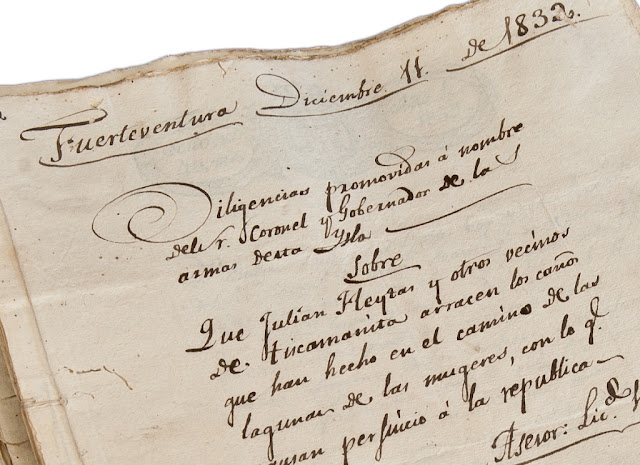 Fuerteventura Diciembre 11. de 1832.
Diligencias promovidas á nombre
del Sr. Coronel y Gobernador de las
armas desta Ysla
Sobre
Que Julian Fleytas y otros vecinos
de Tiscamanita arracen los caños
que han hecho en el camino de las
lagunas de las mugeres, con lo q.e
causan perjuicio á la republica
Asesor: Lic.do